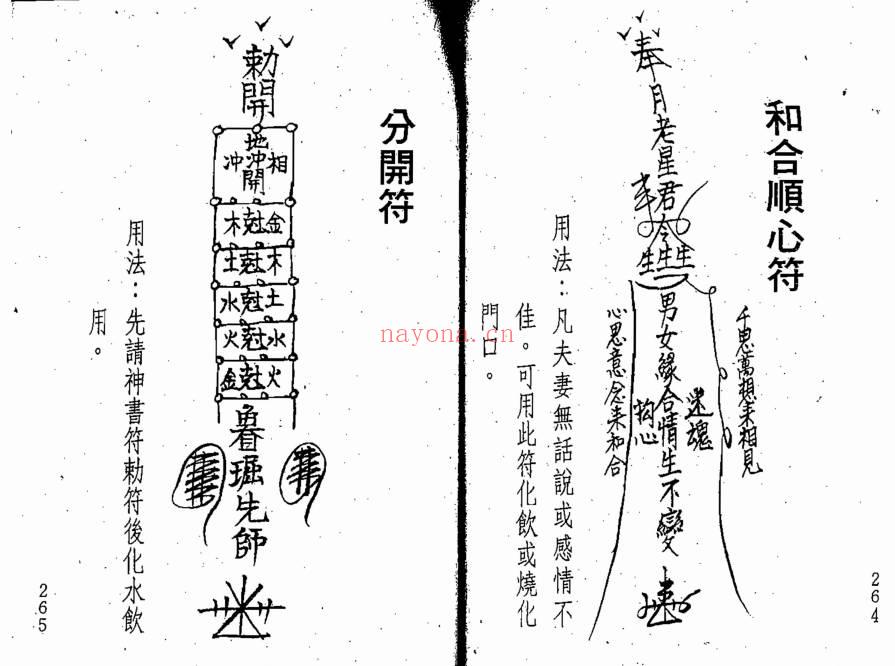 和合順心符
奉月老星君令
生生生
男女緣合情生不變
迷魂
千思萬想來相見
心思意念來和合
用法：凡夫妻無話說或感情不
佳。可用此符化飲或燒化
門口。
264
分開符
勅開
相沖
地沖開
金尅木
木尅土
土尅水
水尅火
火尅金
先師
用法：先請神書符勅符後化水飲
用。
265
nayona.cn